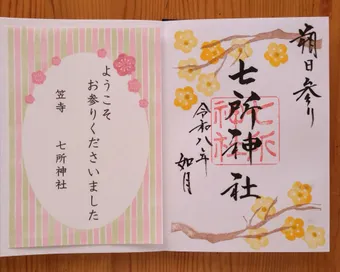 朔日参り
七所神社
七所神社
令和八年
如月
ようこそ
お参りくださいました
笠寺
七所神社